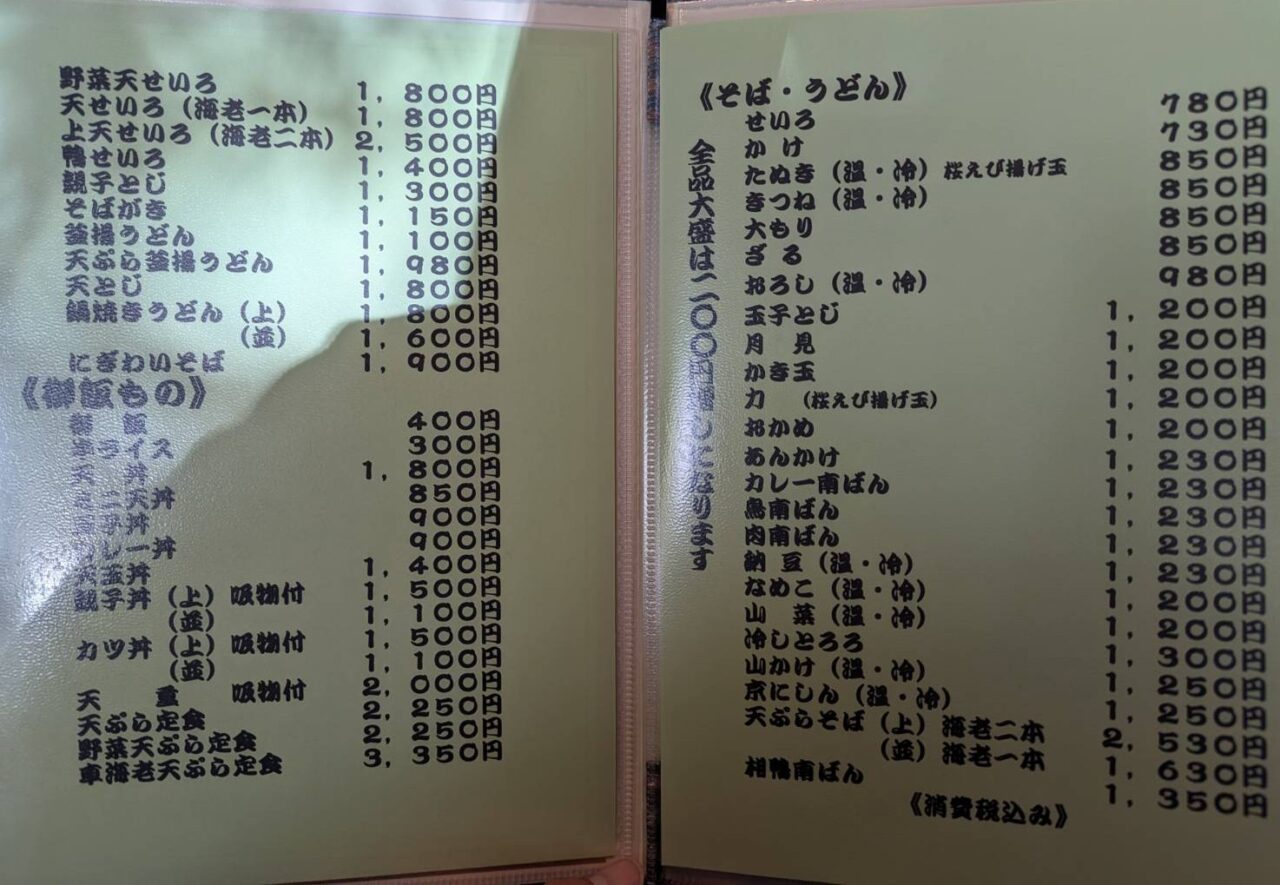 野菜天せいろ 1,800円
天せいろ(海老一本) 1,800円
上天せいろ(海老二本) 2,500円
鴨せいろ 1,400円
親子とじ 1,300円
そばがき 1,150円
釜揚うどん 1,100円
天ぷら釜揚うどん 1,980円
天とじ 1,800円
鍋焼きうどん(上) 1,800円
(並) 1,600円
にぎわいそば 1,900円
《御飯もの》
御 飯 400円
半ライス 300円
天 丼 1,800円
ミニ天丼 850円
玉子丼 900円
カレー丼 900円
天玉丼 1,400円
親子丼(上)吸物付 1,500円
(並) 1,100円
カツ丼(上)吸物付 1,500円
(並) 1,100円
天 重 吸物付 2,000円
天ぷら定食 2,250円
野菜天ぷら定食 2,250円
車海老天ぷら定食 3,350円
《そば・うどん》
全品大盛は二〇〇円増しになります
せいろ 780円
かけ 730円
たぬき(温・冷)桜えび揚げ玉 850円
きつね(温・冷) 850円
大もり 850円
ざる 850円
おろし(温・冷) 980円
玉子とじ 1,200円
月 見 1,200円
かき玉 1,200円
力 (桜えび揚げ玉) 1,200円
おかめ 1,200円
あんかけ 1,230円
カレー南ばん 1,230円
鳥南ばん 1,230円
肉南ばん 1,230円
納 豆(温・冷) 1,230円
なめこ(温・冷) 1,200円
山 菜(温・冷) 1,200円
冷しとろろ 1,300円
山かけ(温・冷) 1,250円
京にしん(温・冷) 1,250円
天ぷらそば(上)海老二本 2,530円
(並)海老一本 1,630円
相鴨南ばん 1,350円
《消費税込み》